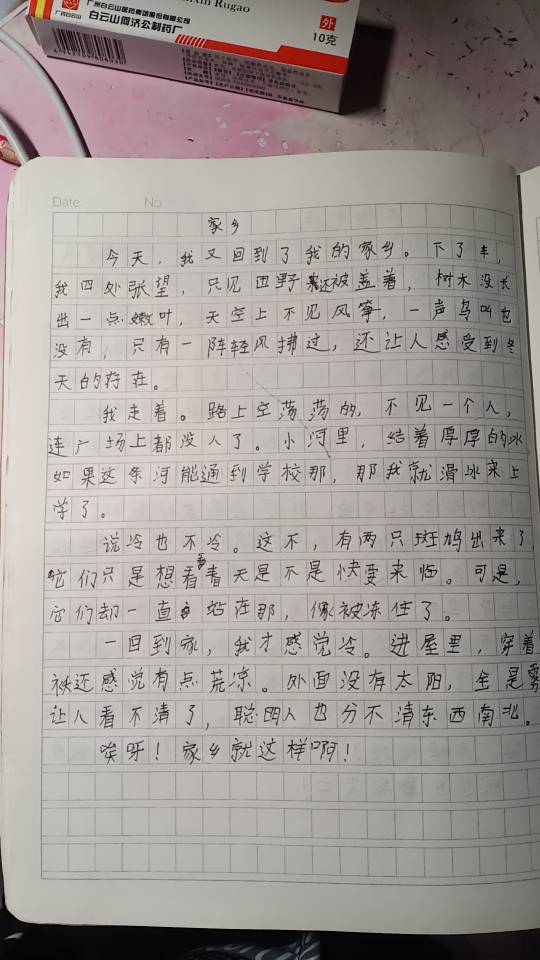 nxin Rugao
广州白云山医药集团股份有限公司
白云山何济公制药厂
外
10克
Date:
No
家乡
今天，我又回到了我的家乡。下了车，
我四处张望，只见田野还被盖着，树木没长
出一点嫩叶，天空上不见风筝，一声鸟叫也
没有，只有一阵轻风拂过，还让人感受到冬
天的存在。
我走着。路上空荡荡的，不见一个人，
连广场上都没人了。小河里，结着厚厚的冰
如果这条河能通到学校那，那我就滑冰来上
学了。
说冷也不冷。这不，有两只斑鸠出来了
它们只是想看看春天是不是快要来临。可是，
它们却一直站在那，像被冻住了。
一回到家，我才感觉冷。进屋里，穿着
袄还感觉有点荒凉。外面没有太阳，全是雾
让人看不清了，聪明人也分不清东西南北。
唉呀！家乡就这样啊！